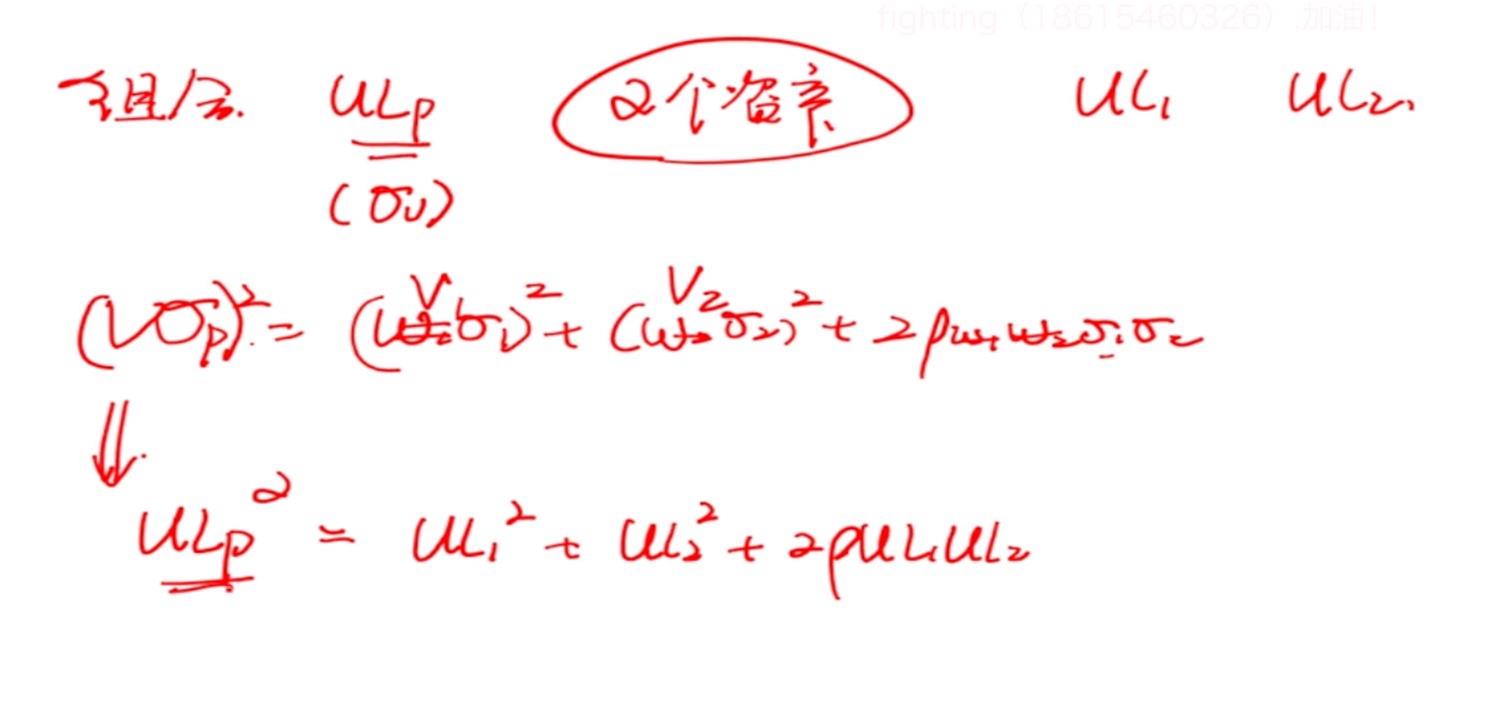 fighting（18615460326）.加油！
组合. ULp 2个资产 UL₁ UL₂.
(σv)
V₁ V₂
(Vσp)² = (w₁σ₁)² + (w₂σ₂)² + 2ρw₁w₂σ₁σ₂
⇓
ULp² = UL₁² + UL₂² + 2ρUL₁UL₂